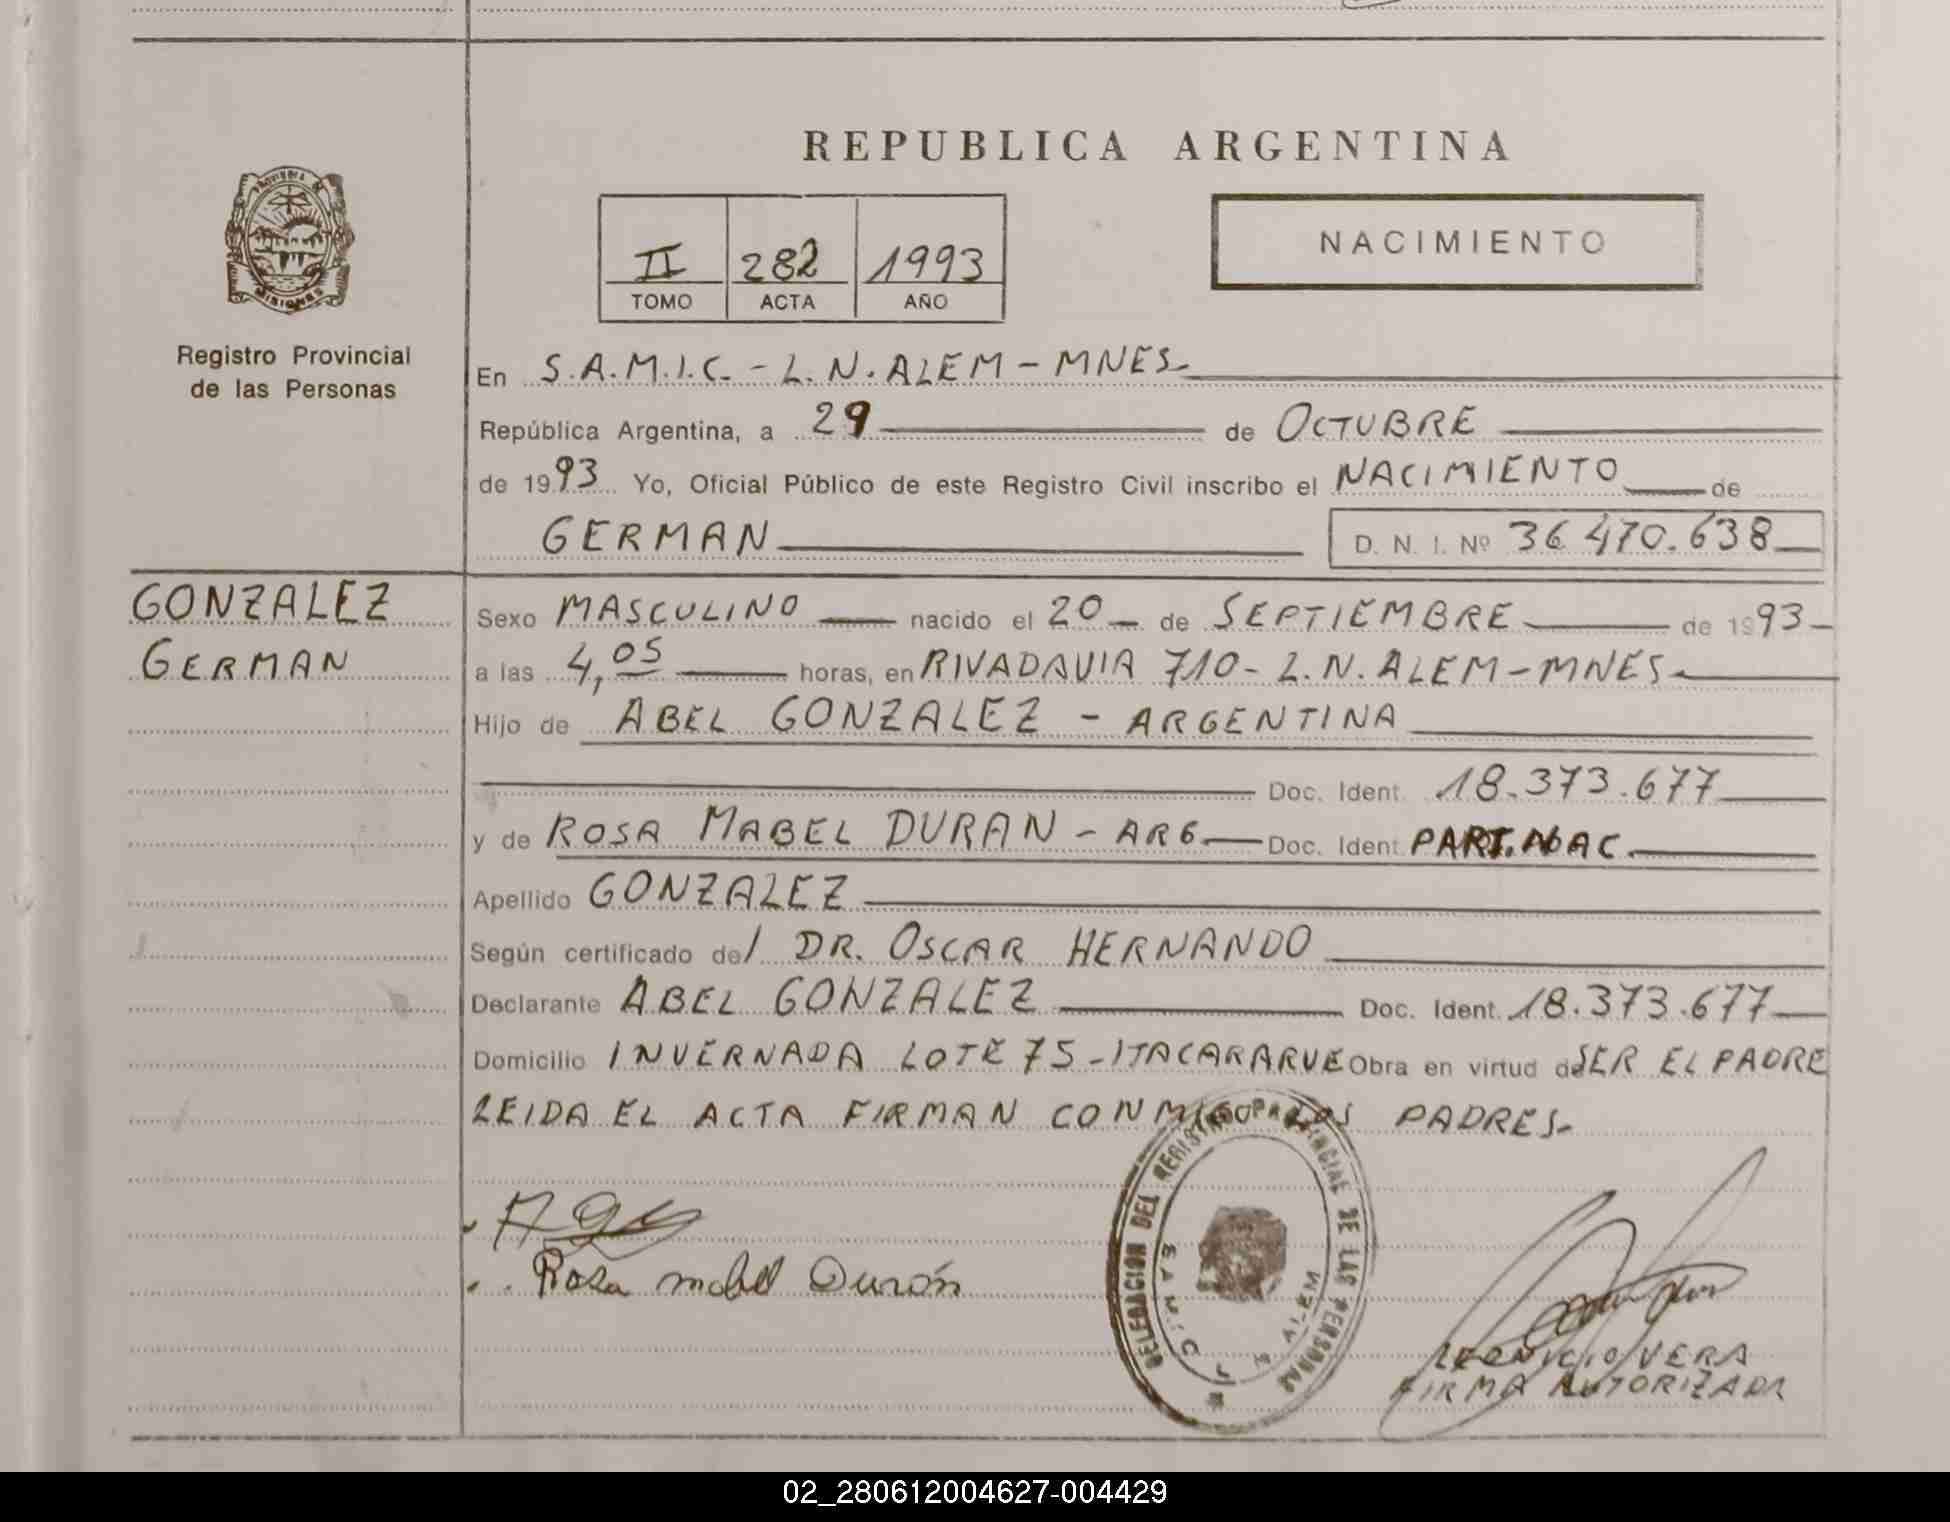 REPUBLICA ARGENTINA
PROVINCIA DE
MISIONES
Registro Provincial
de las Personas
II 282 1993
TOMO ACTA AÑO
NACIMIENTO
En S.A.M.I.C. - L.N. ALEM - MNES-
República Argentina, a 29 de OCTUBRE
de 1993 Yo, Oficial Público de este Registro Civil inscribo el NACIMIENTO de
GERMAN D. N. I. Nº 36.470.638
GONZALEZ
GERMAN
Sexo MASCULINO nacido el 20 de SEPTIEMBRE de 1993
a las 4,05 horas, en RIVADAVIA 710 - L.N. ALEM - MNES
Hijo de ABEL GONZALEZ - ARGENTINA
Doc. Ident. 18.373.677
y de ROSA MABEL DURAN - ARG Doc. Ident. PART. NAC
Apellido GONZALEZ
Según certificado del DR. OSCAR HERNANDO
Declarante ABEL GONZALEZ Doc. Ident. 18.373.677
Domicilio INVERNADA LOTE 75 - ITACARARVE Obra en virtud de SER EL PADRE
LEIDA EL ACTA FIRMAN CONMIGO LOS PADRES-
Rosa mabel Durán
DELEGACION DEL REGISTRO PROVINCIAL DE LAS PERSONAS
ALEM
LEONICIO VERA
FIRMA AUTORIZADA
02_280612004627-004429